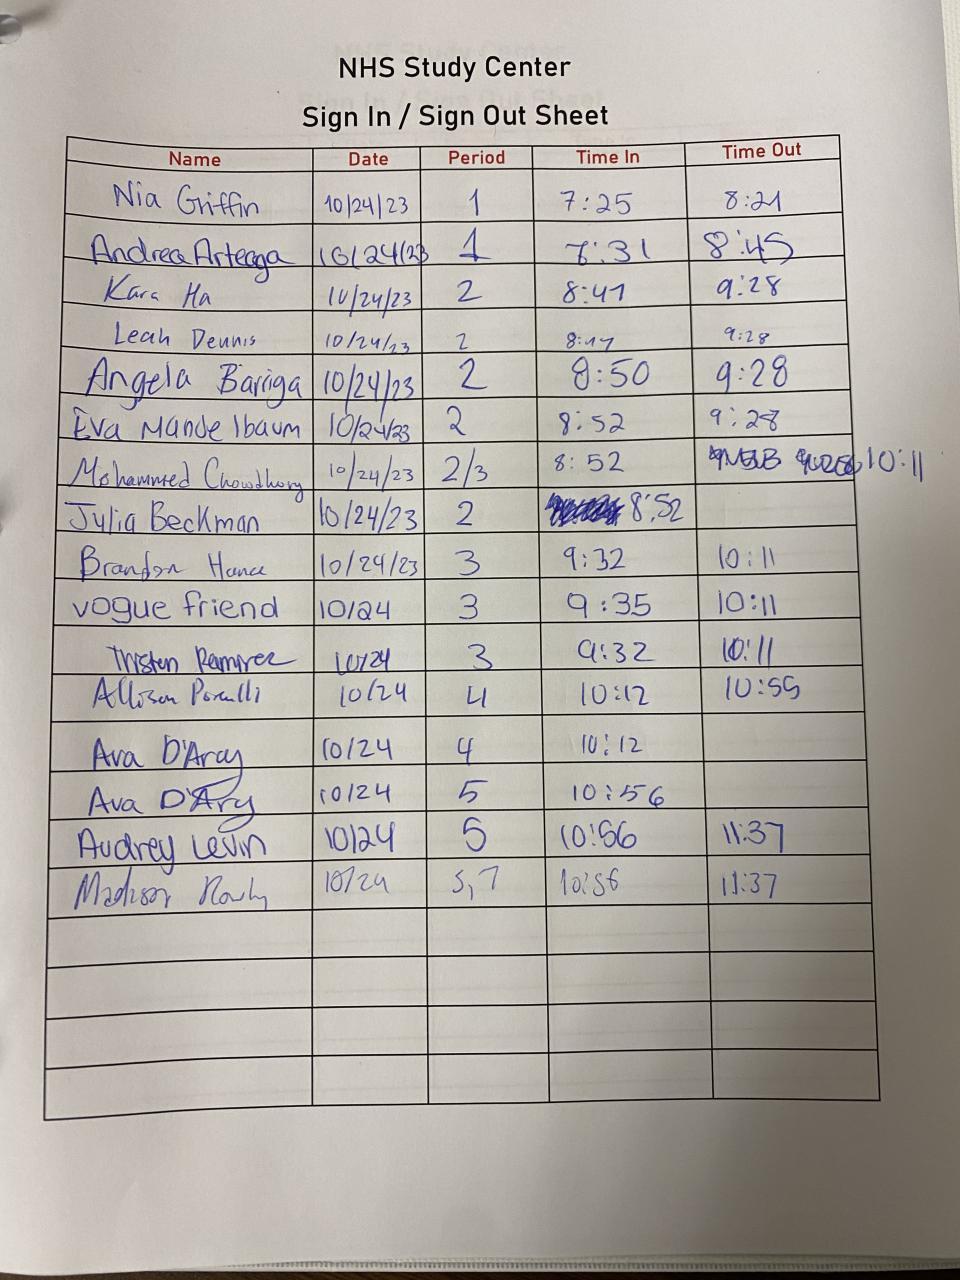 NHS Study Center
Sign In / Sign Out Sheet
Name Date Period Time In Time Out
Nia Griffin 10/24/23 1 7:25 8:21
Andrea Arteaga 10/24/23 1 7:31 8:45
Kara Ha 10/24/23 2 8:47 9:28
Leah Dennis 10/24/23 2 8:47 9:28
Angela Barriga 10/24/23 2 8:50 9:28
Eva Mandelbaum 10/24/23 2 8:52 9:28
Mohammed Chowdhury 10/24/23 2/3 8:52 10:11
Julia Beckman 10/24/23 2 8:52
Brandon 10/24/23 3 9:32 10:11
vogue friend 10/24 3 9:35 10:11
Tristen Ramirez 10/24 3 9:32 10:11
Allison 10/24 4 10:12 10:55
Ava D'Arcy 10/24 4 10:12
Ava D'Arcy 10/24 5 10:56
Audrey Levin 10/24 5 10:56 11:37
Madison 10/24 5,7 10:56 11:37